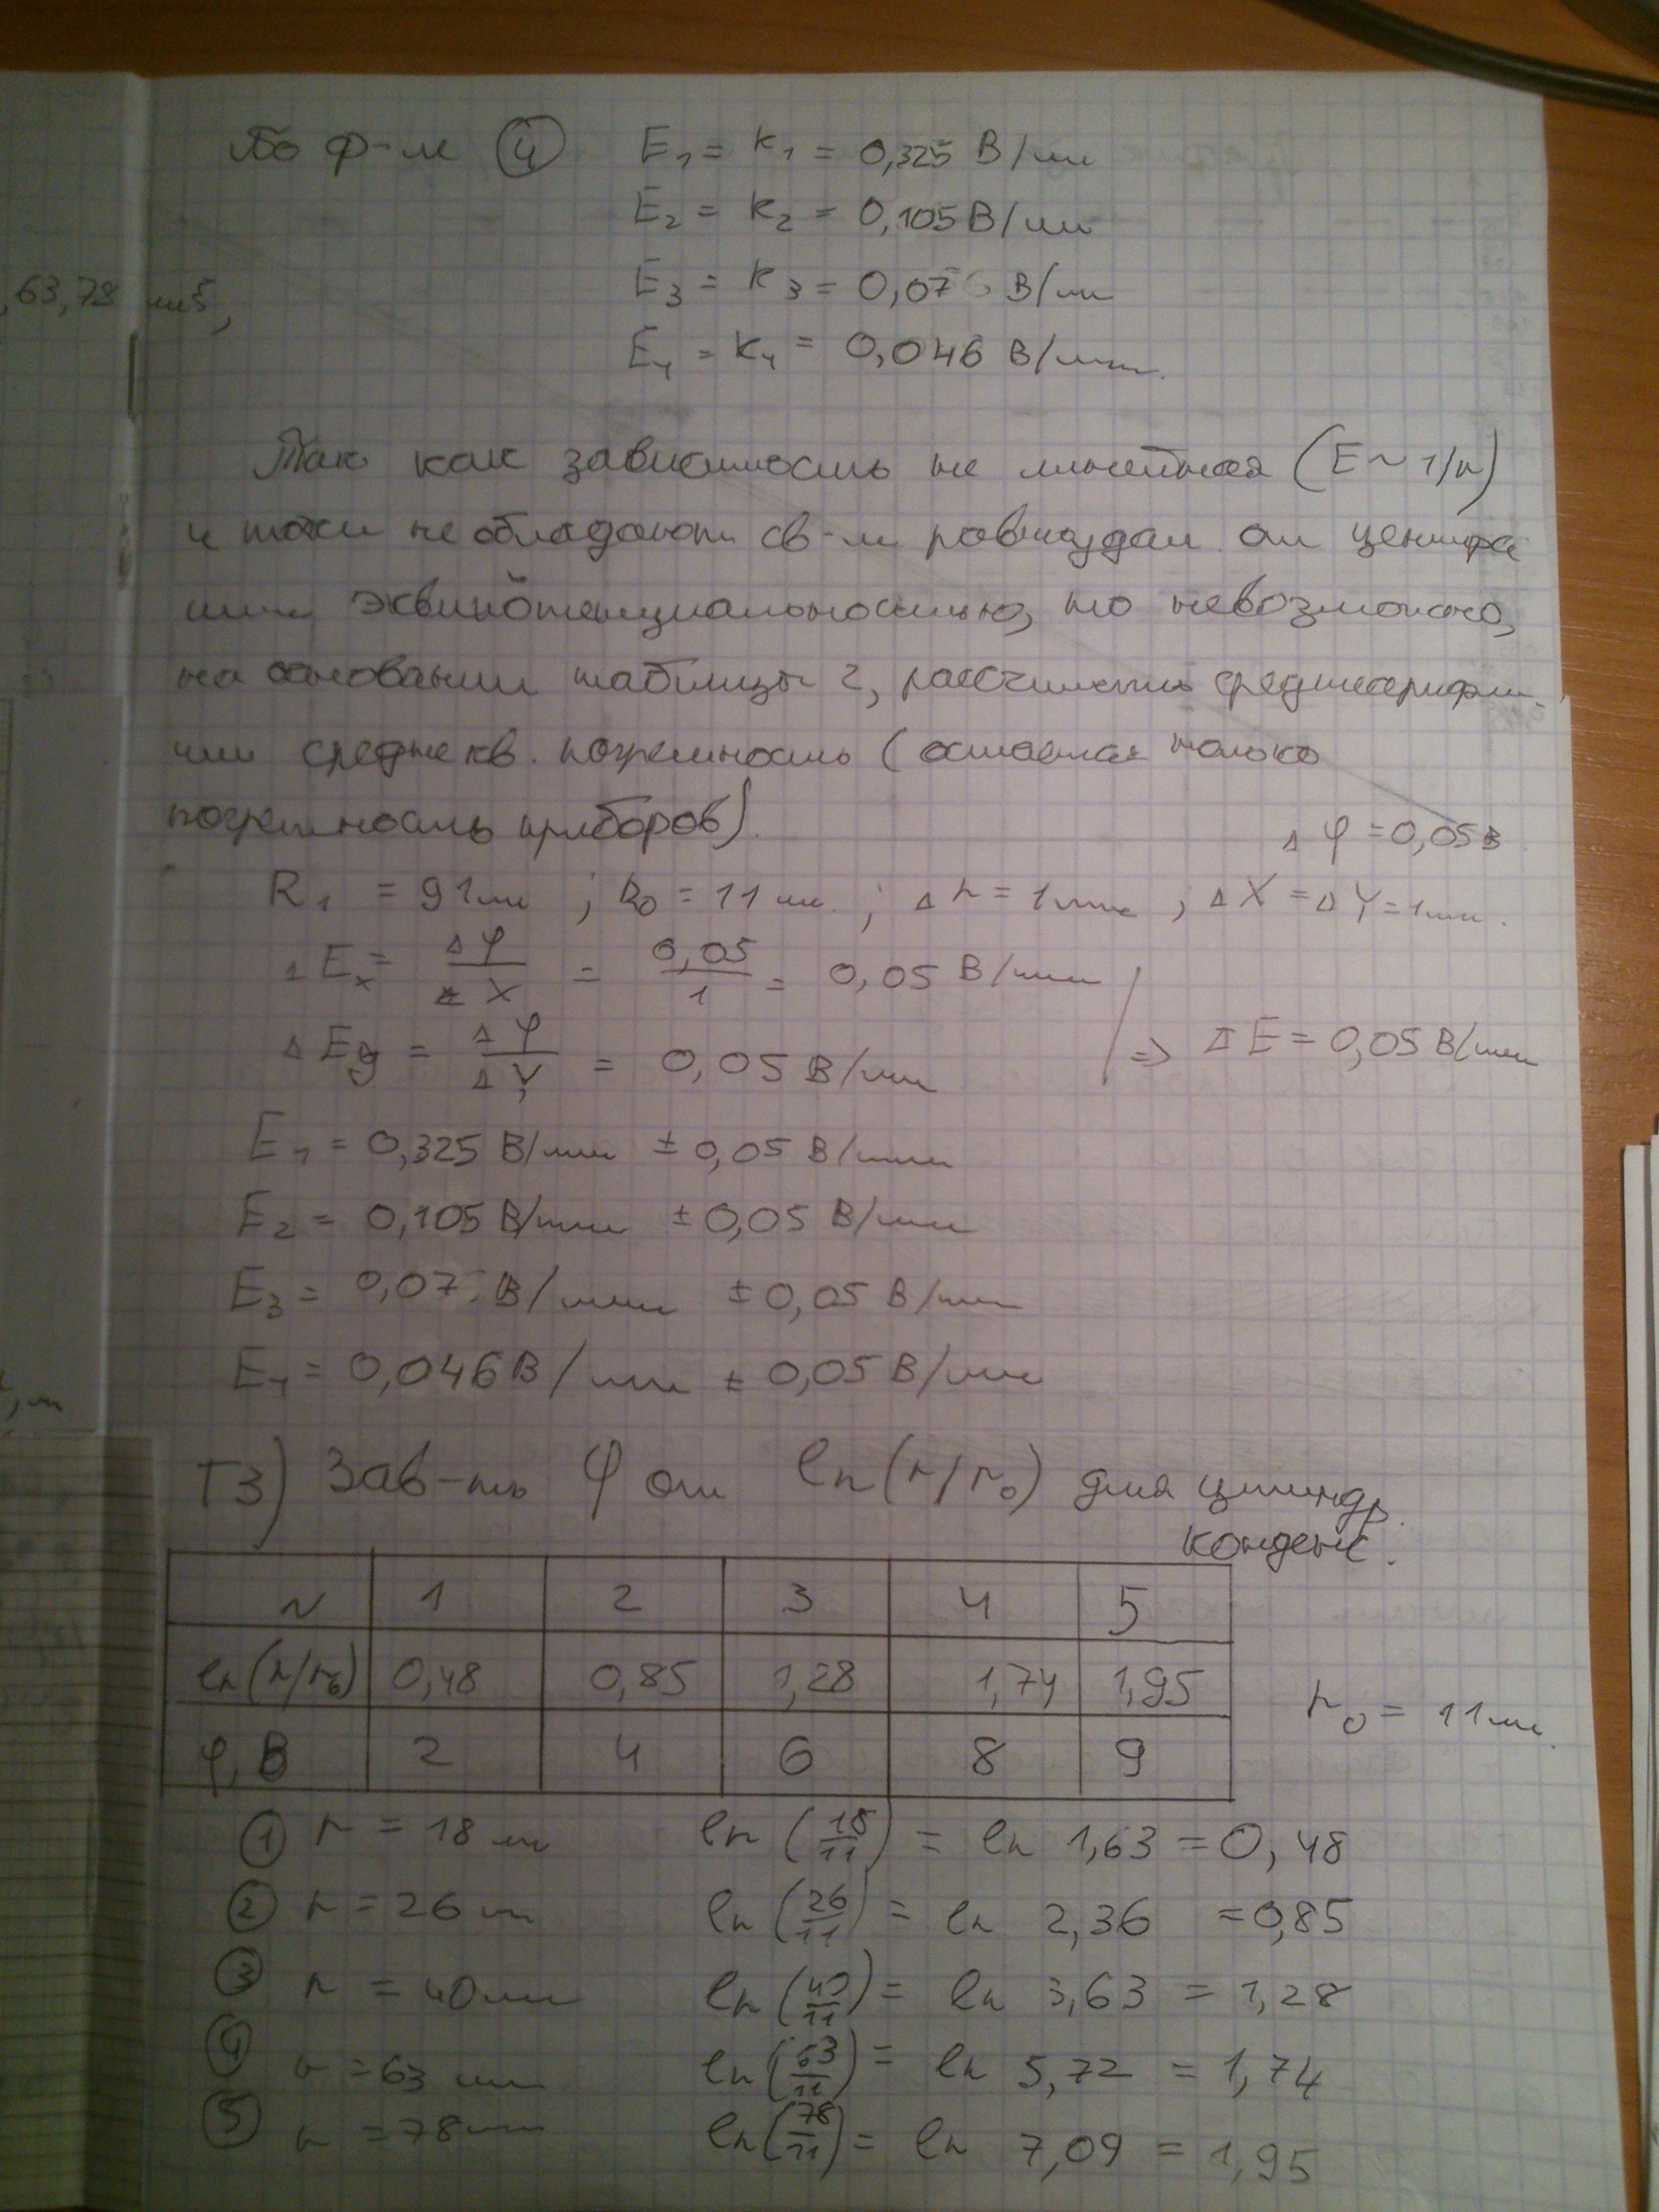 ,63,78 мм,
По ф-ле (4) E₁ = k₁ = 0,325 В/мм
E₂ = k₂ = 0,105 В/мм
E₃ = k₃ = 0,07 В/мм
E₄ = k₄ = 0,046 В/мм.
Так как зависимость не линейная (E ~ 1/r)
и точки не обладают св-м равноудал. от центра
эквипотенциальностью, то невозможно,
на основании таблицы 2, рассчитать среднеарифм.
или средне кв. погрешность (остается только
погрешность приборов).
Δφ = 0,05 В
R₁ = 91 мм ; R₀ = 11 мм ; Δr = 1 мм ; ΔX = ΔY = 1 мм.
ΔEx = Δφ/ΔX = 0,05/1 = 0,05 В/мм
ΔEy = Δφ/ΔY = 0,05 В/мм => ΔE = 0,05 В/мм
E₁ = 0,325 В/мм ± 0,05 В/мм
E₂ = 0,105 В/мм ± 0,05 В/мм
E₃ = 0,07 В/мм ± 0,05 В/мм
E₄ = 0,046 В/мм ± 0,05 В/мм
Т3) Зав-ть φ от ln(r/r₀) для цилиндр.
конденс.
N 1 2 3 4 5
ln(r/r₀) 0,48 0,85 1,28 1,74 1,95
r₀ = 11 мм.
φ, В 2 4 6 8 9
① r = 18 мм ln(18/11) = ln 1,63 = 0,48
② r = 26 мм ln(26/11) = ln 2,36 = 0,85
③ r = 40 мм ln(40/11) = ln 3,63 = 1,28
④ r = 63 мм ln(63/11) = ln 5,72 = 1,74
⑤ r = 78 мм ln(78/11) = ln 7,09 = 1,95